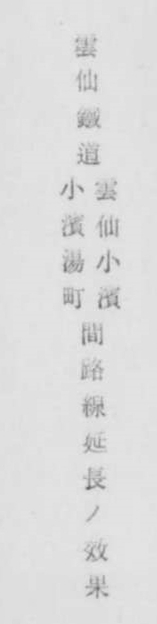 雲仙鐵道
雲仙小濱
小濱湯町
間路線延長ノ效果